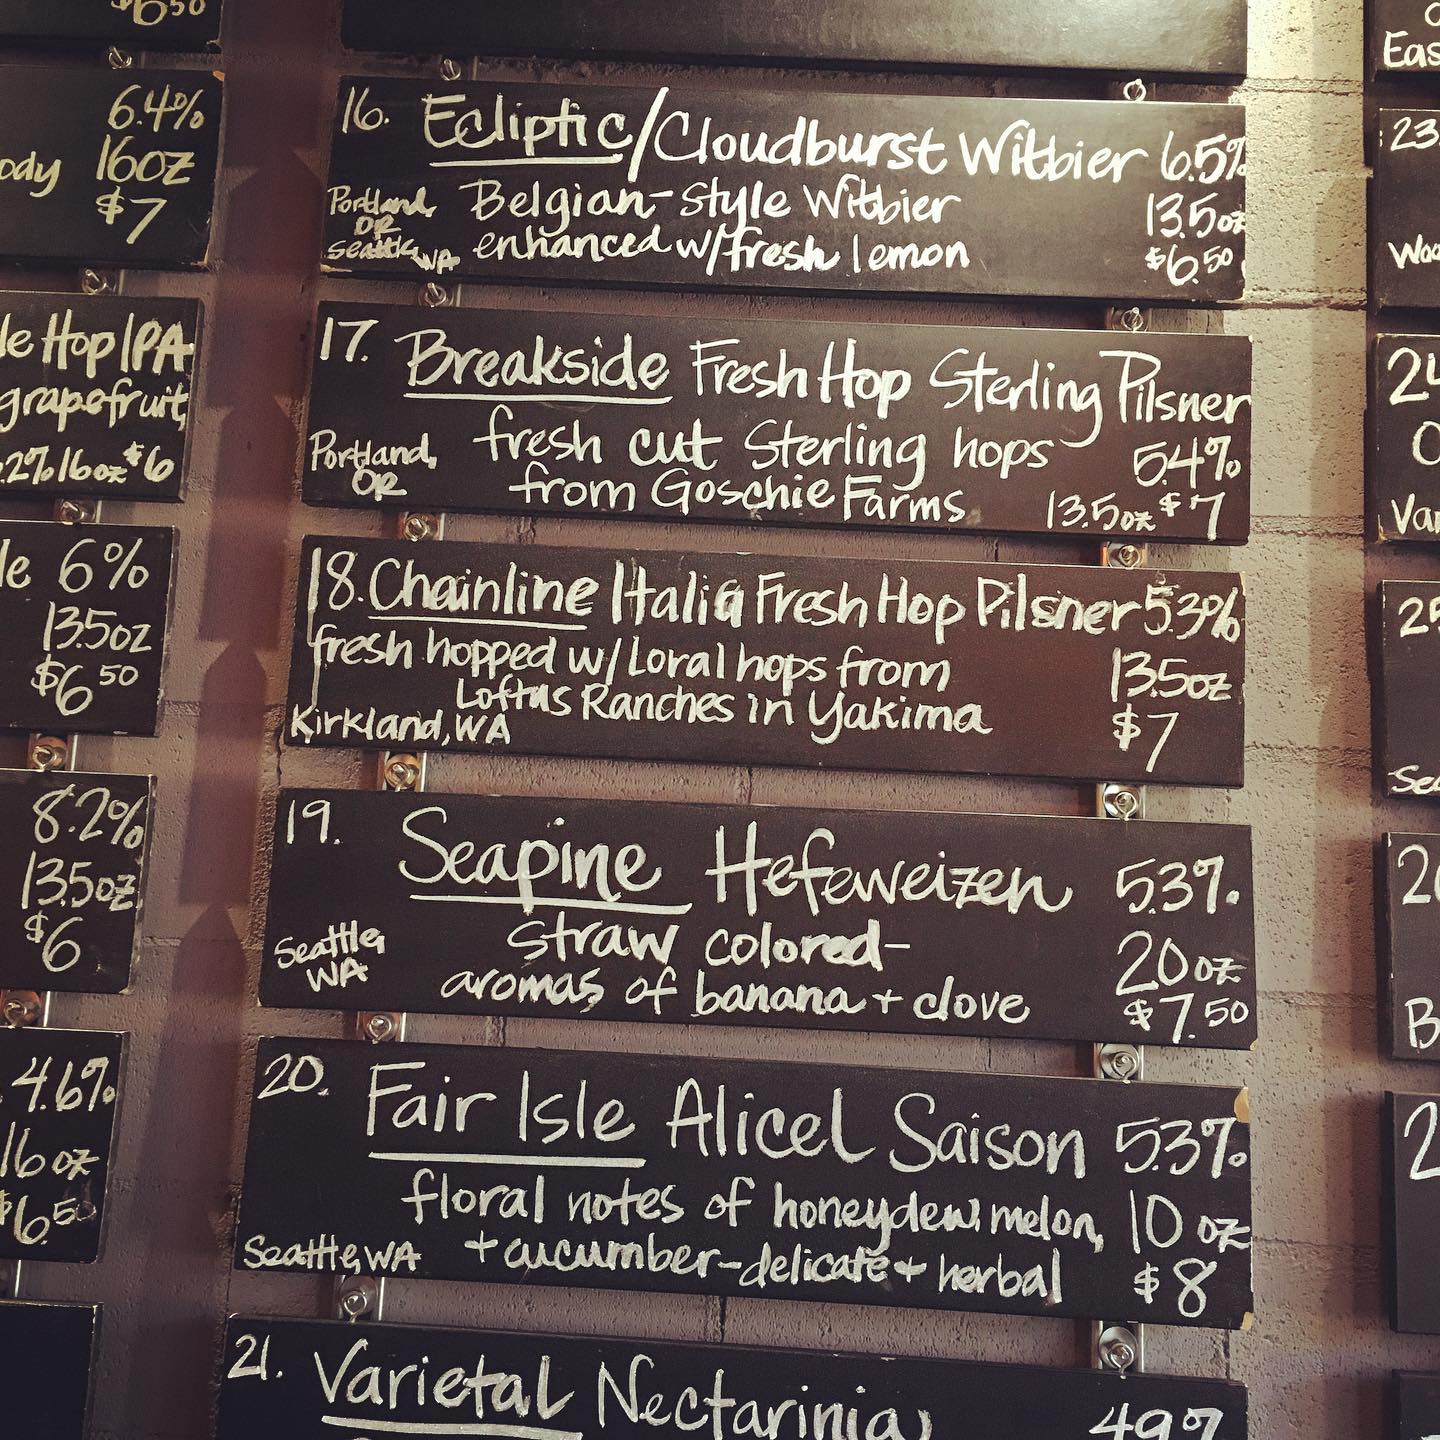 $6.50
6.4%
ody 16oz
$7
le Hop IPA
grapefruit,
.2% 16oz $6
le 6%
13.5oz
$6.50
8.2%
13.5oz
$6
4.6%
16oz
$6.50
16. Ecliptic/Cloudburst Witbier 6.5%
Portland, OR Seattle, WA
Belgian-style Witbier 13.5oz
enhanced w/fresh lemon $6.50
17. Breakside Fresh Hop Sterling Pilsner
Portland, OR
fresh cut Sterling hops 5.4%
from Goschie Farms 13.5oz $7
18. Chainline Italia Fresh Hop Pilsner 5.3%
fresh hopped w/Loral hops from 13.5oz
Loftus Ranches in Yakima $7
Kirkland, WA
19. Seapine Hefeweizen 5.3%
Seattle, WA
straw colored- 20oz
aromas of banana + clove $7.50
20. Fair Isle Alicel Saison 5.3%
floral notes of honeydew melon, 10 oz
Seattle, WA + cucumber-delicate + herbal $8
21. Varietal Nectarinia 4.9%
Eas
23.
Woo
24
O
Var
25
Sea
2
B
2